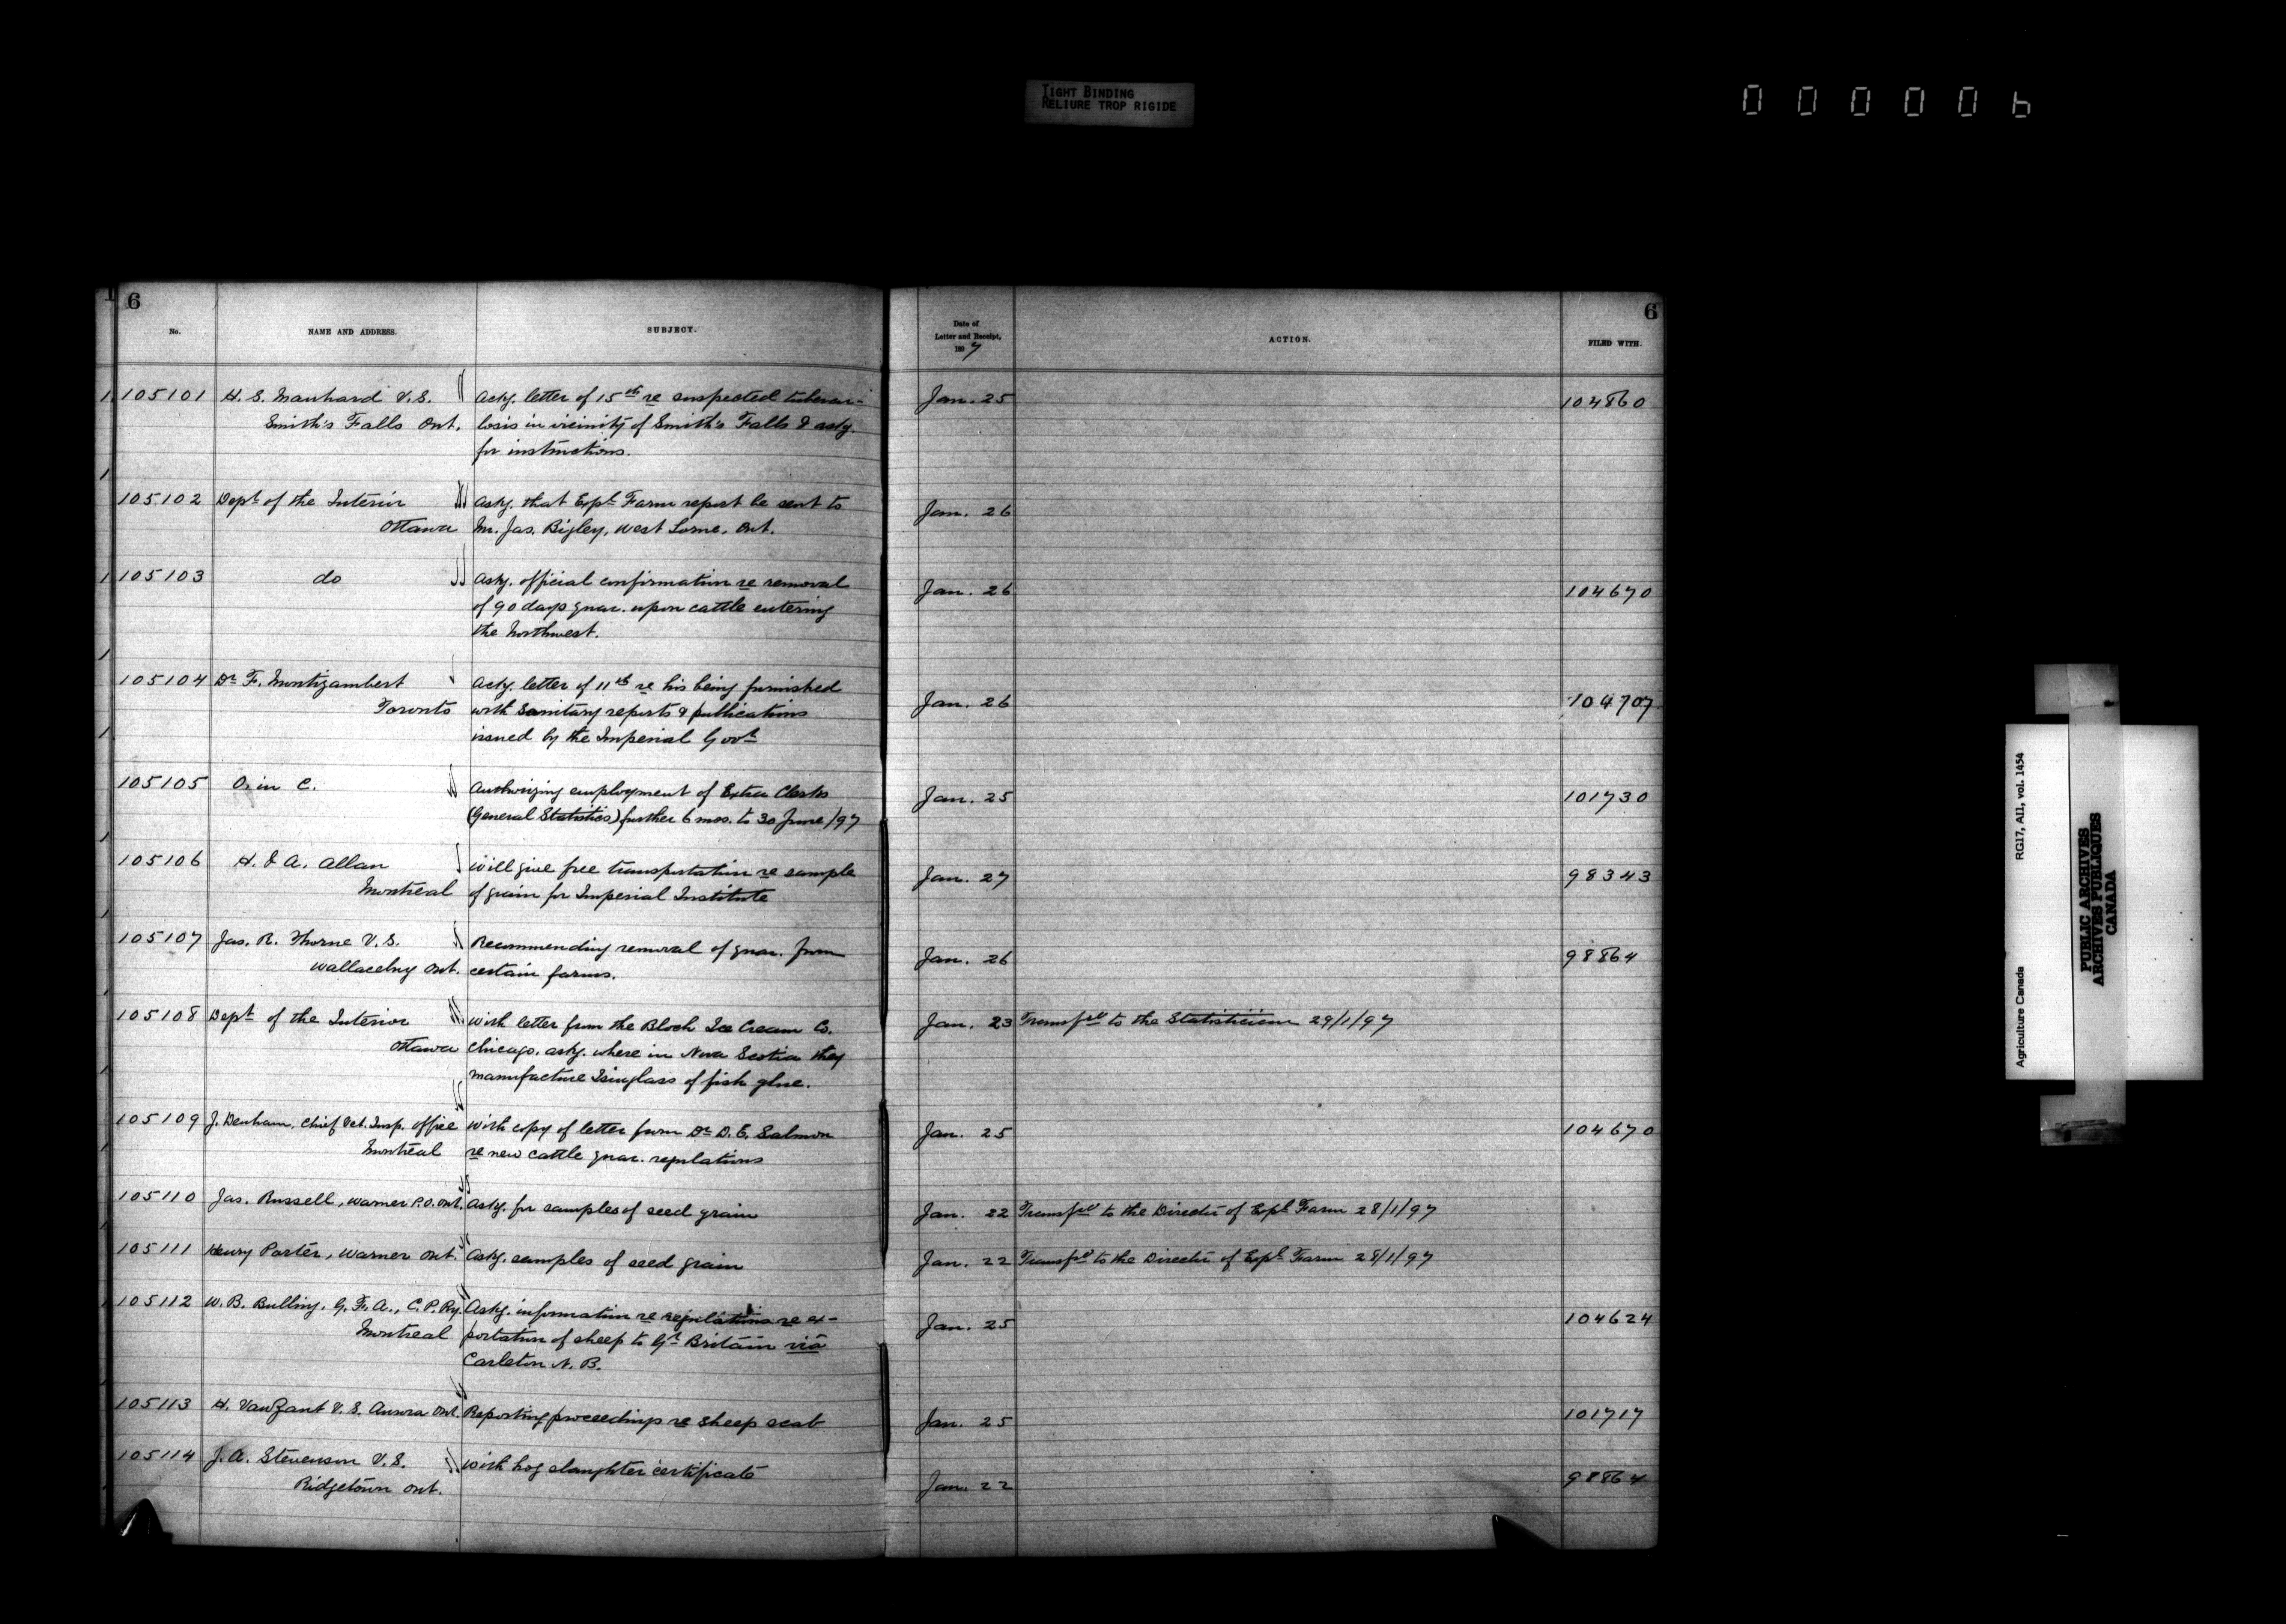 TIGHT BINDING
RELIURE TROP RIGIDE
000006
6
No.
NAME AND ADDRESS.
SUBJECT.
Date of
Letter and Receipt,
1897
ACTION.
6
FILED WITH.
105101 H. S. Manhard V.S. Ackg. letter of 15th re suspected tubercu- Jan. 25 104860
Smith's Falls Ont. losis in vicinity of Smith's Falls & askg.
for instructions.
105102 Dept of the Interior Askg. that Expl Farm report be sent to Jan. 26
Ottawa Mr. Jas. Bigley, West Lorne, Ont.
105103 do Askg. official confirmation re removal Jan. 26 104670
of 90 days quar. upon cattle entering
the Northwest.
105104 Dr F. Montizambert Ackg. letter of 11th re his being furnished Jan. 26 104707
Toronto with Sanitary reports & publications
issued by the Imperial Govt
105105 O. in C. Authorizing employment of Extra Clerks Jan. 25 101730
(General Statistics) further 6 mos. to 30 June/97
105106 H. & A. Allan Will give free transportation re sample Jan. 27 98343
Montreal of grain for Imperial Institute
105107 Jas. R. Thorne V.S. Recommending removal of quar. from Jan. 26 98864
Wallacebug Ont. certain farms.
105108 Dept of the Interior With letter from the Bloch Ice Cream Co. Jan. 23 Transfd to the Statistician 29/1/97
Ottawa Chicago, askg. where in Nova Scotia they
manufacture Isinglass of fish glue.
105109 J. Denham, Chief Vet. Insp. Office With copy of letter from Dr D. E. Salmon Jan. 25 104670
Montreal re new cattle quar. regulations
105110 Jas. Russell, Warner P.O. Ont. Askg. for samples of seed grain Jan. 22 Transfd to the Director of Expl Farm 28/1/97
105111 Henry Porter, Warner Ont. Askg. samples of seed grain Jan. 22 Transfd to the Director of Expl Farm 28/1/97
105112 W. B. Bulling, G. F. A., C. P. Ry. Askg. information re regulations re ex- Jan. 25 104624
Montreal portation of sheep to Gt Britain via
Carleton N. B.
105113 H. VanZant V. S. Aurora Ont. Reporting proceedings re sheep scab Jan. 25 101717
105114 J. A. Stevenson V. S. With hog slaughter certificate Jan. 22 98864
Ridgetown Ont.
Agriculture Canada RG17, AII, vol. 1454
PUBLIC ARCHIVES
ARCHIVES PUBLIQUES
CANADA